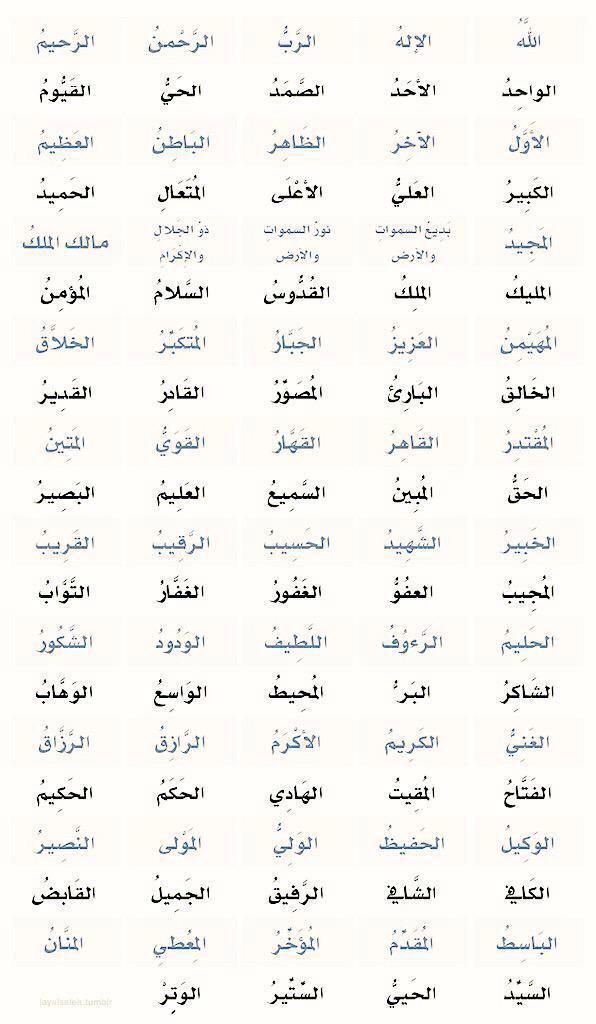 اللَّهُ الإلهُ الرَّبُّ الرَّحْمنُ الرَّحيمُ
الواحِدُ الأَحَدُ الصَّمَدُ الحَيُّ القَيُّومُ
الأَوَّلُ الآخِرُ الظَاهِرُ البَاطِنُ العَظِيمُ
الكَبِيرُ العَلِيُّ الأَعْلَى المُتَعَالِ الحَمِيدُ
المَجِيدُ بَدِيعُ السموات والأرض نورُ السموات والأرض ذو الجَلالِ والإكْرَامِ مالك الملكُ
المليكُ الملِكُ القُدُّوسُ السَّلامُ المُؤمِنُ
المُهَيْمِنُ العَزِيزُ الجَبَّارُ المُتكبِّرُ الخَلاَّقُ
الخَالِقُ البَارِئُ المُصَوِّرُ القَادِرُ القَدِيرُ
المُقْتدِرُ القَاهِرُ القَهَّارُ القَوَيُّ المَتِينُ
الحَقُّ المُبِينُ السَّمِيعُ العَلِيمُ البَصِيرُ
الخَبِيرُ الشَّهِيدُ الحَسِيبُ الرَّقِيبُ القَرِيبُ
المُجِيبُ العفُوُّ الغَفُورُ الغَفَّارُ التَّوَّابُ
الحَلِيمُ الرَّءوُفُ اللَّطِيفُ الوَدُودُ الشَّكُورُ
الشَاكِرُ البَرُّ المُحِيطُ الوَاسِعُ الوَهَّابُ
الغَنِيُّ الكَرِيمُ الأَكْرَمُ الرَّازِقُ الرَّزَّاقُ
الفَتَّاحُ المُقِيتُ الهَادِي الحَكَمُ الحَكِيمُ
الوَكِيلُ الحَفيظُ الوَلِيُّ المَوْلى النَّصِيرُ
الكَافي الشَّافي الرَّفِيقُ الجَمِيلُ القَابِضُ
البَاسِطُ المُقَدِّمُ المُؤَخِّرُ المُعْطِي المنَّانُ
السَّيِّدُ الحَيِيُّ السِّتِّيرُ الوَتِرْ
layalsaleh.tumblr